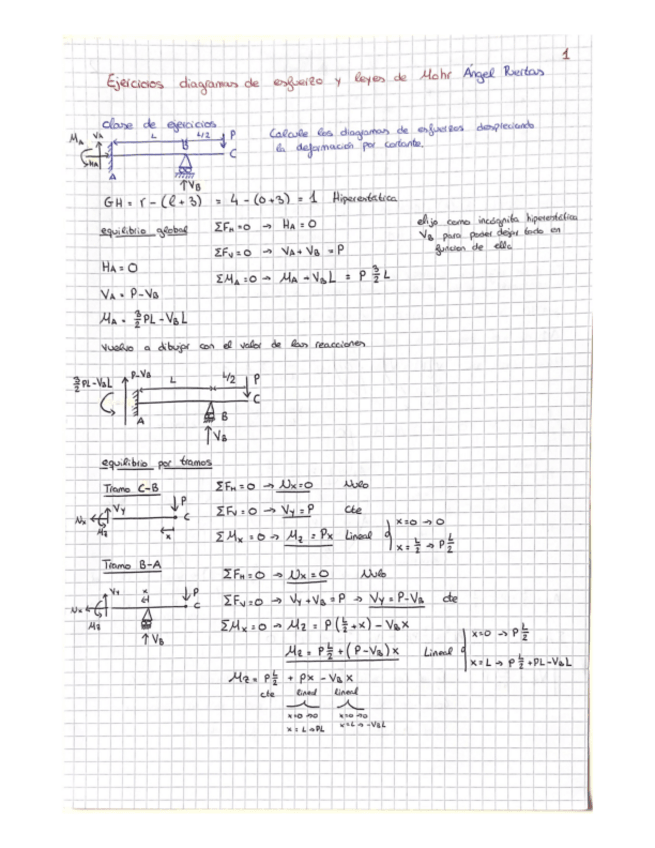 1
Ejercicios diagramas de esfuerzo y leyes de Mohr Ángel Puertas
clase de ejercicios
Calcule los diagramas de esfuerzos despreciando
la deformación por cortante.
M_A V_A L B L/2 P
H_A A C
↑V_B
GH = r - (l+3) = 4 - (0+3) = 1 Hiperestática
equilibrio global ΣF_H = 0 → H_A = 0
elijo como incógnita hiperestática
V_B para poder dejar todo en
función de ella
ΣF_V = 0 → V_A + V_B = P
H_A = 0
ΣM_A = 0 → M_A + V_B L = P 3/2 L
V_A = P - V_B
M_A = 3/2 PL - V_B L
vuelvo a dibujar con el valor de las reacciones
3/2 PL - V_B L P - V_B L L/2 P
C
A B
↑V_B
equilibrio por tramos
Tramo C-B ΣF_H = 0 → N_x = 0 Nulo
N_x V_y P C M_z x
ΣF_V = 0 → V_y = P cte
ΣM_x = 0 → M_z = Px Lineal { x=0 → 0
x = L/2 → P L/2
Tramo B-A
ΣF_H = 0 → N_x = 0 Nulo
N_x V_y x P C
M_z ↑V_B
ΣF_V = 0 → V_y + V_B = P → V_y = P - V_B cte
ΣM_x = 0 → M_z = P(L/2 + x) - V_B x
M_z = P L/2 + (P - V_B) x Lineal { x=0 → P L/2
x=L → P L/2 + PL - V_B L
M_z = P L/2 + Px - V_B x
cte lineal lineal
x=0 → 0 x=0 → 0
x=L → PL x=L → -V_B L